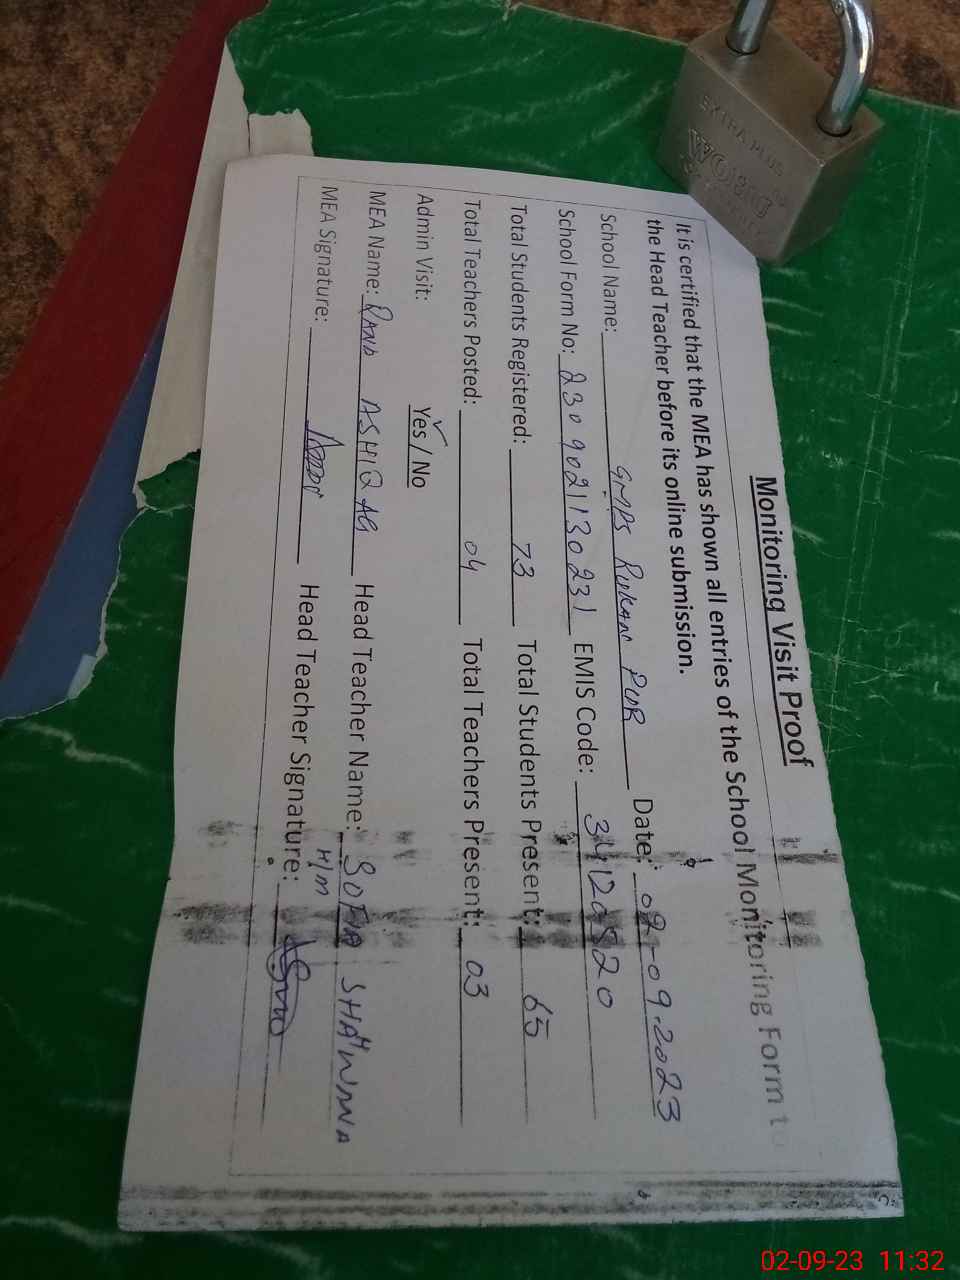 Monitoring Visit Proof
It is certified that the MEA has shown all entries of the School Monitoring Form to
the Head Teacher before its online submission.
School Name: GMPS RUKAN PUR Date: 02-09-2023
School Form No: 2309021130231 EMIS Code: 34120820
Total Students Registered: 73 Total Students Present: 65
Total Teachers Posted: 04 Total Teachers Present: 03
Admin Visit: Yes / No
MEA Name: RANA ASHIQ Ali Head Teacher Name: SOFIA SHAHWANA
H/M
MEA Signature: Head Teacher Signature:
EXTRA PLUS
02-09-23 11:32